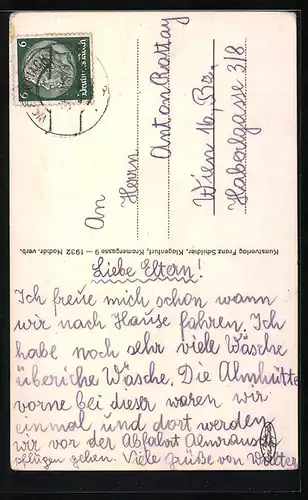 6
6
Deutsches Reich
An
Herrn
Anton Rattay
Wien 16, Bez.
Haberlgasse 3/8
Kunstverlag Franz Schilcher, Klagenfurt, Kramergasse 9 — 1932 Nachdr. verb.
Liebe Eltern!
Ich freue mich schon wann
wir nach Hause fahren. Ich
habe noch sehr viele Wäsche
überiche Wäsche. Die Almhütte
vorne bei dieser waren wir
einmal und dort werden
wir vor der Abfahrt Almraus
pflügen gehen. Viele Grüße von Walter